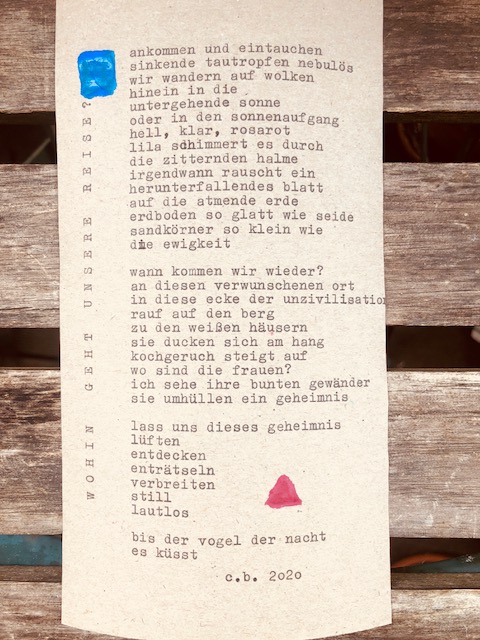 WOHIN GEHT UNSERE REISE?
ankommen und eintauchen
sinkende tautropfen nebulös
wir wandern auf wolken
hinein in die
untergehende sonne
oder in den sonnenaufgang
hell, klar, rosarot
lila schimmert es durch
die zitternden halme
irgendwann rauscht ein
herunterfallendes blatt
auf die atmende erde
erdboden so glatt wie seide
sandkörner so klein wie
die ewigkeit
wann kommen wir wieder?
an diesen verwunschenen ort
in diese ecke der unzivilisation
rauf auf den berg
zu den weißen häusern
sie ducken sich am hang
kochgeruch steigt auf
wo sind die frauen?
ich sehe ihre bunten gewänder
sie umhüllen ein geheimnis
lass uns dieses geheimnis
lüften
entdecken
enträtseln
verbreiten
still
lautlos
bis der vogel der nacht
es küsst
c.b. 2020